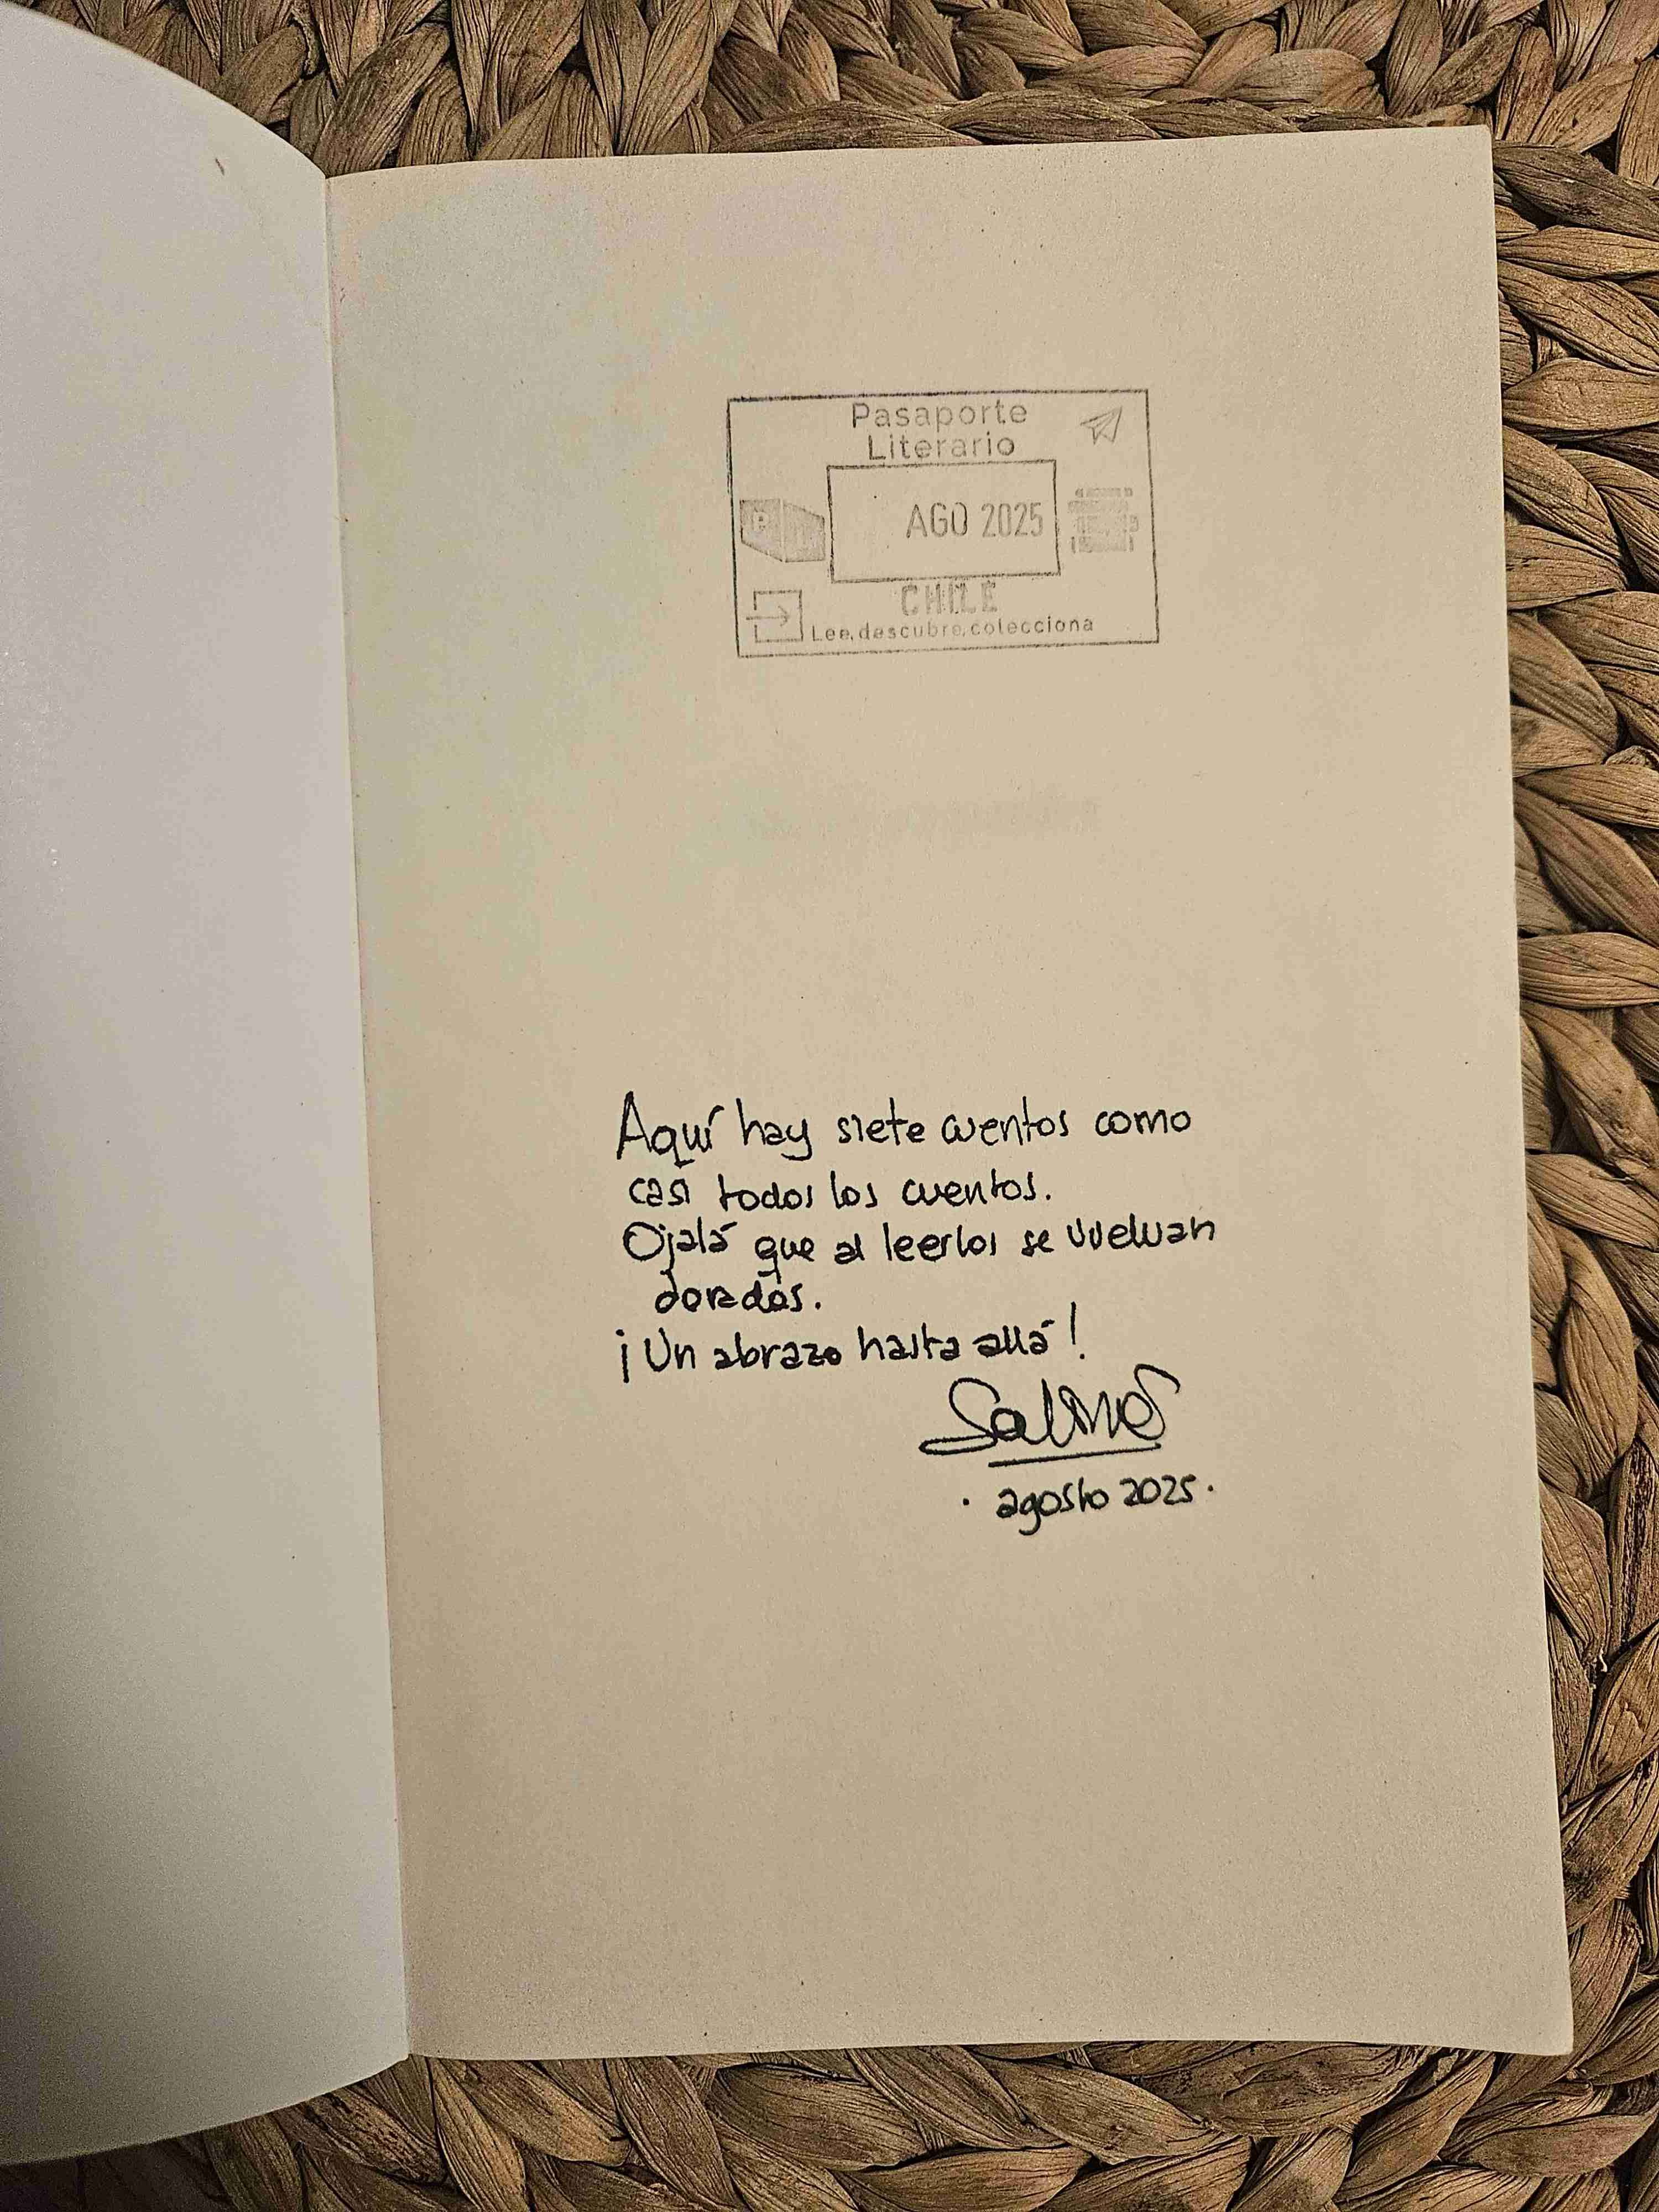 Pasaporte
Literario
P
AGO 2025
CHILE
Lee, descubre, colecciona
Aquí hay siete cuentos como
casi todos los cuentos.
Ojalá que al leerlos se vuelvan
dorados.
¡Un abrazo hasta allá!
· agosto 2025.